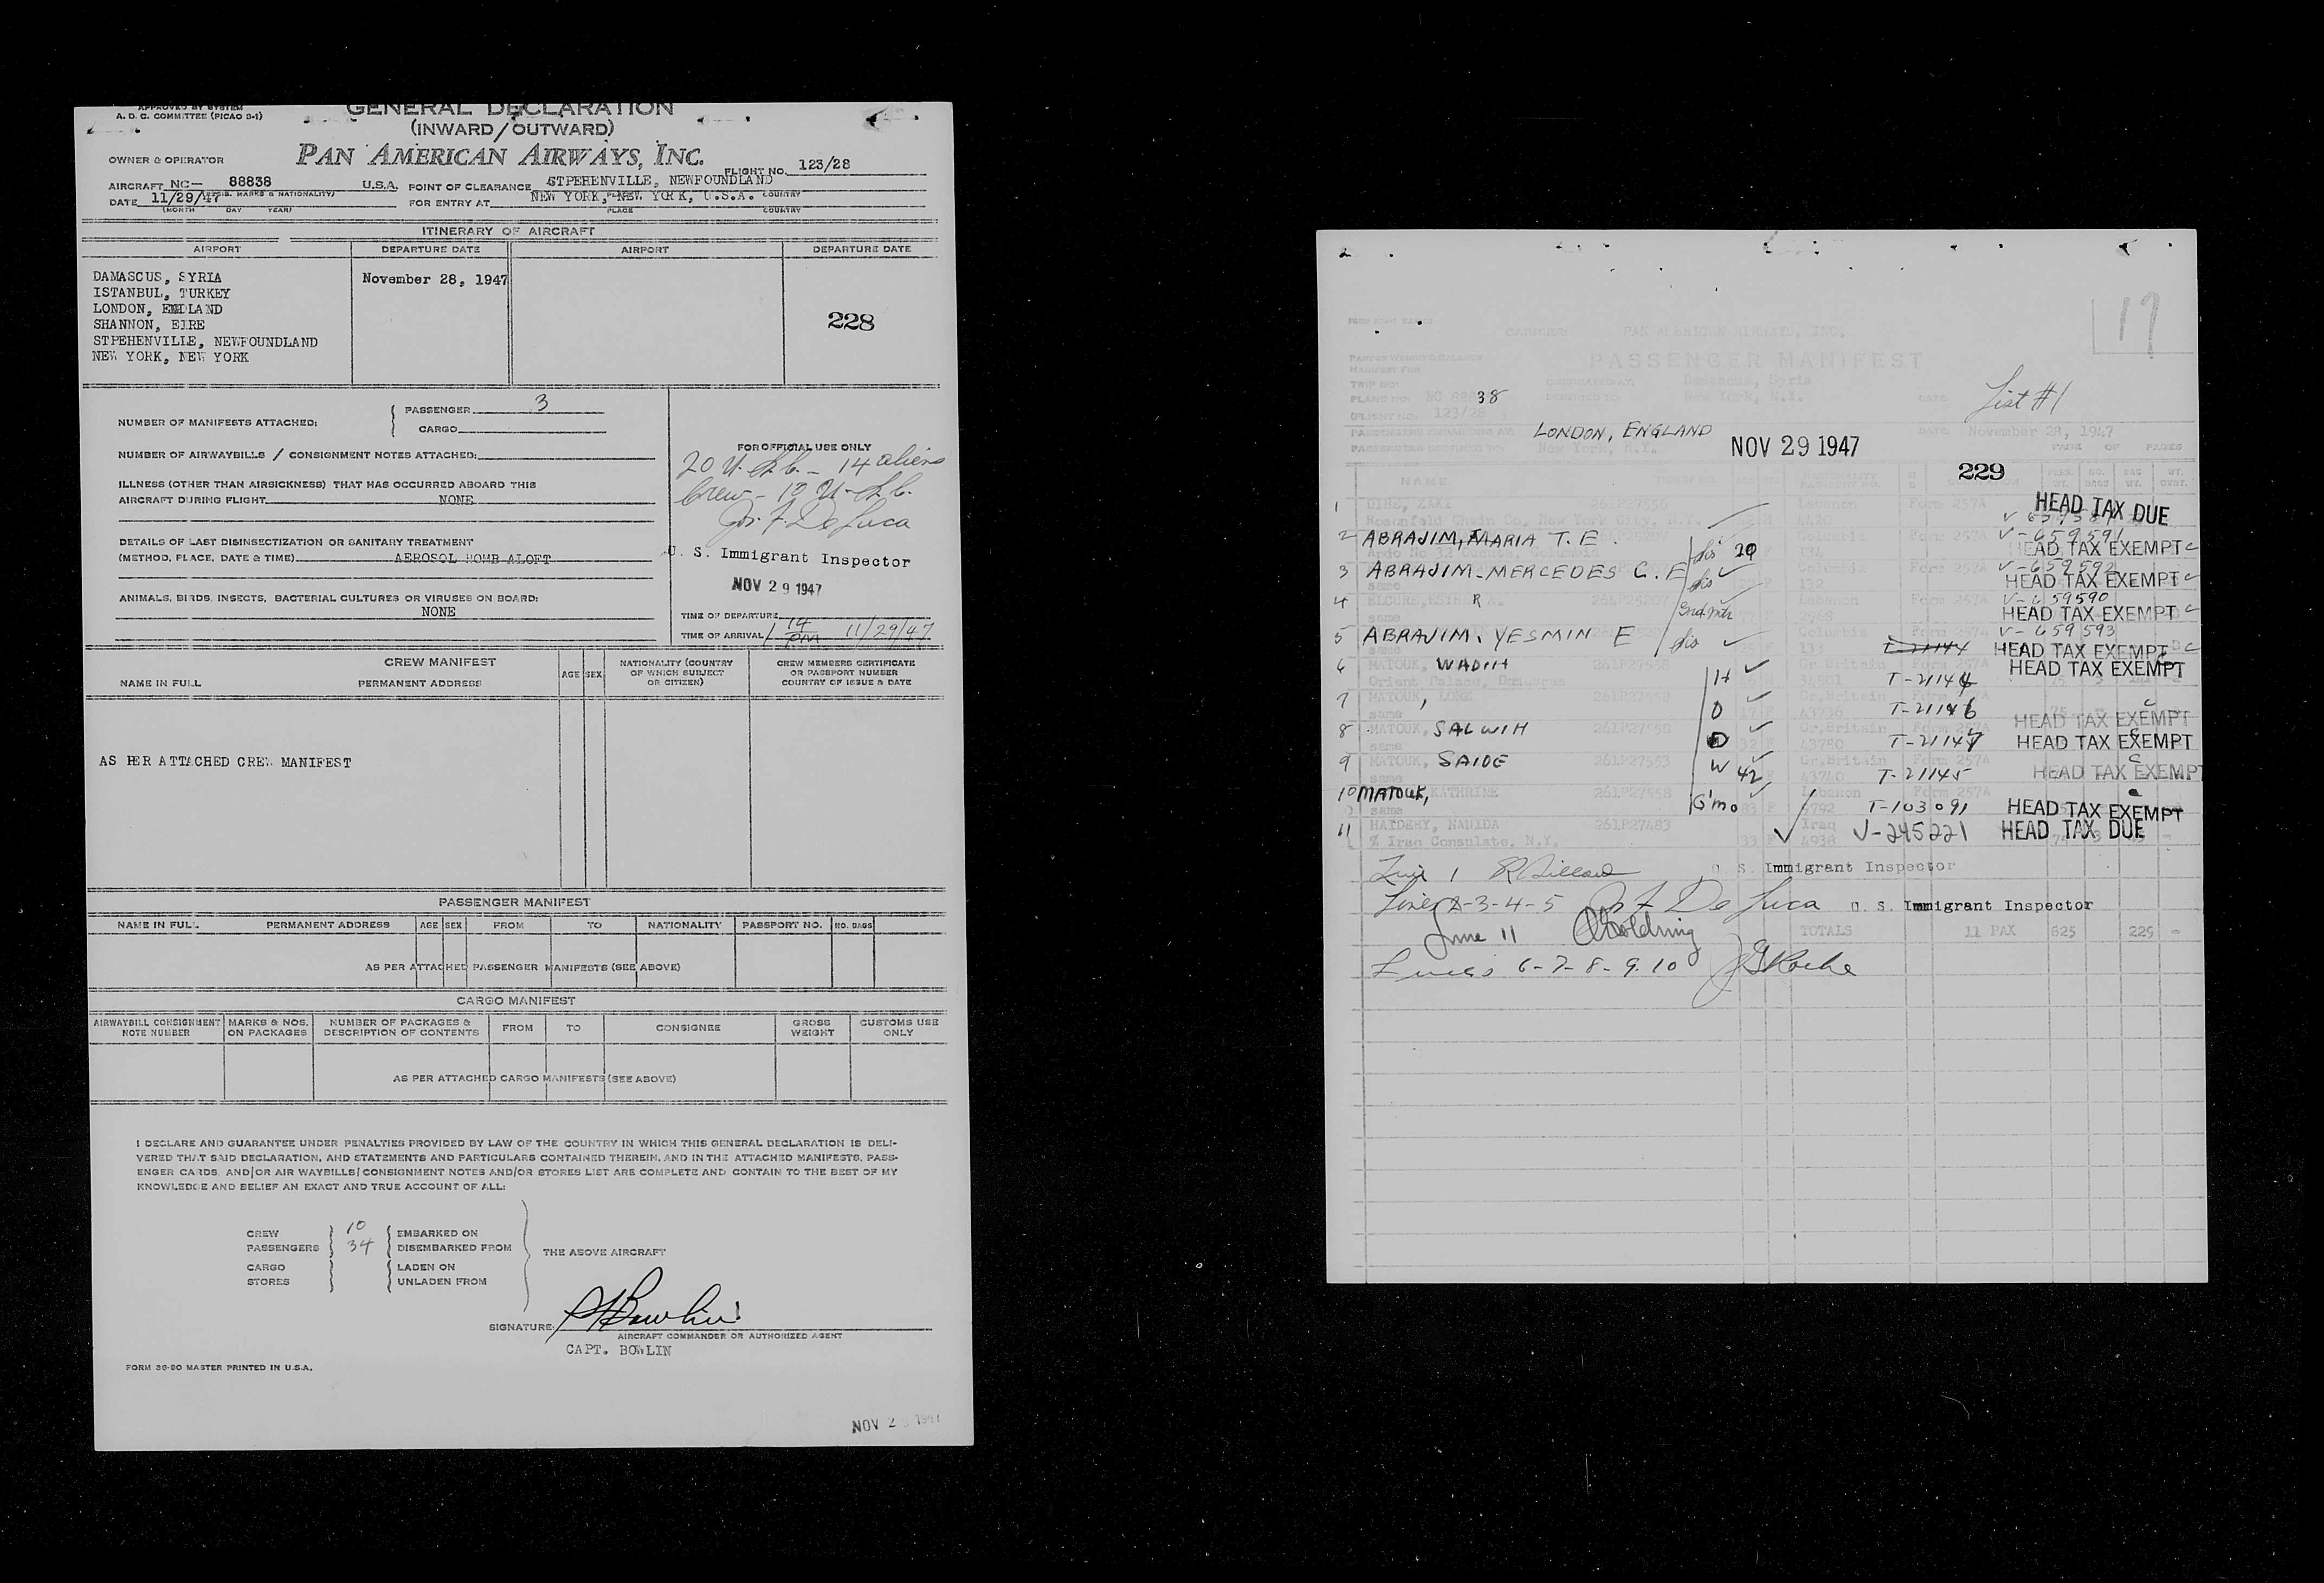 APPROVED BY SYSTEM
A. D. C. COMMITTEE (PICAO 3-1)
GENERAL DECLARATION
(INWARD/OUTWARD)
PAN AMERICAN AIRWAYS, INC.
OWNER & OPERATOR
FLIGHT NO. 123/28
AIRCRAFT NC- 88838 U.S.A. POINT OF CLEARANCE STPEHENVILLE, NEWFOUNDLAND
(REGIS. MARKS & NATIONALITY) PLACE COUNTRY
DATE 11/29/47 FOR ENTRY AT NEW YORK, NEW YORK, U.S.A.
(MONTH DAY YEAR) PLACE COUNTRY
ITINERARY OF AIRCRAFT
AIRPORT DEPARTURE DATE AIRPORT DEPARTURE DATE
DAMASCUS, SYRIA November 28, 1947
ISTANBUL, TURKEY
LONDON, ENDLAND
SHANNON, EIRE
228
STPEHENVILLE, NEWFOUNDLAND
NEW YORK, NEW YORK
NUMBER OF MANIFESTS ATTACHED: PASSENGER 3
CARGO
NUMBER OF AIRWAYBILLS / CONSIGNMENT NOTES ATTACHED:
ILLNESS (OTHER THAN AIRSICKNESS) THAT HAS OCCURRED ABOARD THIS
AIRCRAFT DURING FLIGHT NONE
DETAILS OF LAST DISINSECTIZATION OR SANITARY TREATMENT
(METHOD, PLACE, DATE & TIME) AEROSOL BOMB ALOFT
ANIMALS, BIRDS, INSECTS, BACTERIAL CULTURES OR VIRUSES ON BOARD:
NONE
FOR OFFICIAL USE ONLY
20 U.S.C. - 14 aliens
Crew - 10 U.S.C.
Jos. F. DeLuca
U. S. Immigrant Inspector
NOV 29 1947
TIME OF DEPARTURE
TIME OF ARRIVAL 1 14 PM 11/29/47
CREW MANIFEST
NAME IN FULL PERMANENT ADDRESS AGE SEX NATIONALITY (COUNTRY OF WHICH SUBJECT OR CITIZEN) CREW MEMBERS CERTIFICATE OR PASSPORT NUMBER COUNTRY OF ISSUE & DATE
AS PER ATTACHED CREW MANIFEST
PASSENGER MANIFEST
NAME IN FULL PERMANENT ADDRESS AGE SEX FROM TO NATIONALITY PASSPORT NO. NO. BAGS
AS PER ATTACHED PASSENGER MANIFESTS (SEE ABOVE)
CARGO MANIFEST
AIRWAYBILL CONSIGNMENT NOTE NUMBER MARKS & NOS. ON PACKAGES NUMBER OF PACKAGES & DESCRIPTION OF CONTENTS FROM TO CONSIGNEE GROSS WEIGHT CUSTOMS USE ONLY
AS PER ATTACHED CARGO MANIFESTS (SEE ABOVE)
I DECLARE AND GUARANTEE UNDER PENALTIES PROVIDED BY LAW OF THE COUNTRY IN WHICH THIS GENERAL DECLARATION IS DELI-
VERED THAT SAID DECLARATION, AND STATEMENTS AND PARTICULARS CONTAINED THEREIN, AND IN THE ATTACHED MANIFESTS, PASS-
ENGER CARDS, AND/OR AIR WAYBILLS/CONSIGNMENT NOTES AND/OR STORES LIST ARE COMPLETE AND CONTAIN TO THE BEST OF MY
KNOWLEDGE AND BELIEF AN EXACT AND TRUE ACCOUNT OF ALL:
CREW 10 EMBARKED ON
PASSENGERS 34 DISEMBARKED FROM
THE ABOVE AIRCRAFT
CARGO LADEN ON
STORES UNLADEN FROM
SIGNATURE:
AIRCRAFT COMMANDER OR AUTHORIZED AGENT
CAPT. BOWLIN
FORM 36-80 MASTER PRINTED IN U.S.A.
NOV 2 1947
17
CARRIER PAN AMERICAN AIRWAYS, INC.
PASSENGER MANIFEST
TRIP NO: ORIGINATED AT: Damascus, Syria
PLANE NO: NC 8838 DESTINED TO: New York, N.Y. DATE
List #1
(FLIGHT NO. 123/28 )
PASSENGERS EMBARKING AT: LONDON, ENGLAND DATE November 28, 1947
PASSENGERS DESTINED TO: New York, N.Y. NOV 29 1947 PAGE OF PAGES
229
NAME
1 DIBS, ZAKI 261P27556 Lebanon Form 257A HEAD TAX DUE
Rosenfeld Chain Co, New York, N.Y.
2 ABRAJIM, MARIA T. E. dis 29 Colombia Form 257A V-659591 HEAD TAX EXEMPT
134
3 ABRAJIM-MERCEDES C. E dis Colombia Form 257A V-659592 HEAD TAX EXEMPT
same 132
4 ELCURE, ESTHER R 261P25207 Lebanon Form 257A V-659590 HEAD TAX EXEMPT
same
5 ABRAJIM, YESMIN E dis V-659593
same 133 T-21144 HEAD TAX EXEMPT
6 MATOUK, WADIH 261P27558 H Gr.Britain Form 257A HEAD TAX EXEMPT
Orient Palace, Damascus T-21144
7 MATOUK, 261P27558 D Gr.Britain T-21146
same 43736 HEAD TAX EXEMPT
8 MATOUK, SALWIH 261P27558 D Gr.Britain Form 257A
same 32 43780 T-21147 HEAD TAX EXEMPT
9 MATOUK, SAIDE 261P27553 W 42 Gr.Britain Form 257A
same 43740 T-21145 HEAD TAX EXEMPT
10 MATOUK, KATHRINE 261P27558 G'mo Lebanon Form 257A
same 83 F 9792 T-103091 HEAD TAX EXEMPT
11 HAIDERY, NAHIDA 261P27483 Iraq V-245221 HEAD TAX DUE
% Iraq Consulate, N.Y. 33 F 4938
Line 1 U. S. Immigrant Inspector
Lines 2-3-4-5 Jos F De Luca U. S. Immigrant Inspector
Line 11 Goldring TOTALS 11 PAX 825 229 -
Lines 6-7-8-9-10 J G Roche